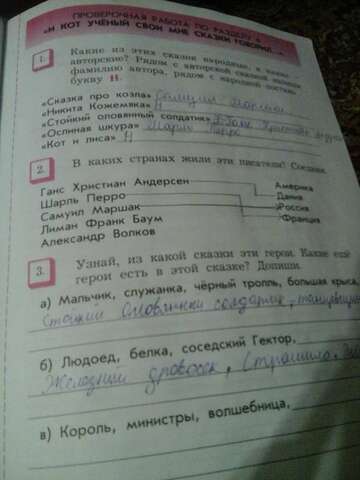 ПРОВЕРОЧНАЯ РАБОТА ПО РАЗДЕЛУ 4
«И КОТ УЧЁНЫЙ СВОИ МНЕ СКАЗКИ ГОВОРИЛ...»
1. Какие из этих сказки народные, а какие
авторские? Рядом с авторской сказкой напиши
фамилию автора, рядом с народной поставь
букву Н.
«Сказка про козла» Самуил Маршак
«Никита Кожемяка» Н
«Стойкий оловянный солдатик»
«Ослиная шкура» Шарль Перро
«Кот и лиса» Н
2. В каких странах жили эти писатели? Соедини.
Ганс Христиан Андерсен Америка
Шарль Перро Дания
Самуил Маршак Россия
Лиман Франк Баум Франция
Александр Волков
3. Узнай, из какой сказки эти герои. Какие ещё
герои есть в этой сказке? Допиши.
а) Мальчик, служанка, чёрный тролль, большая крыса,
Стойкий солдатик,
б) Людоед, белка, соседский Гектор,
дровосек, Страшила,
в) Король, министры, волшебница,